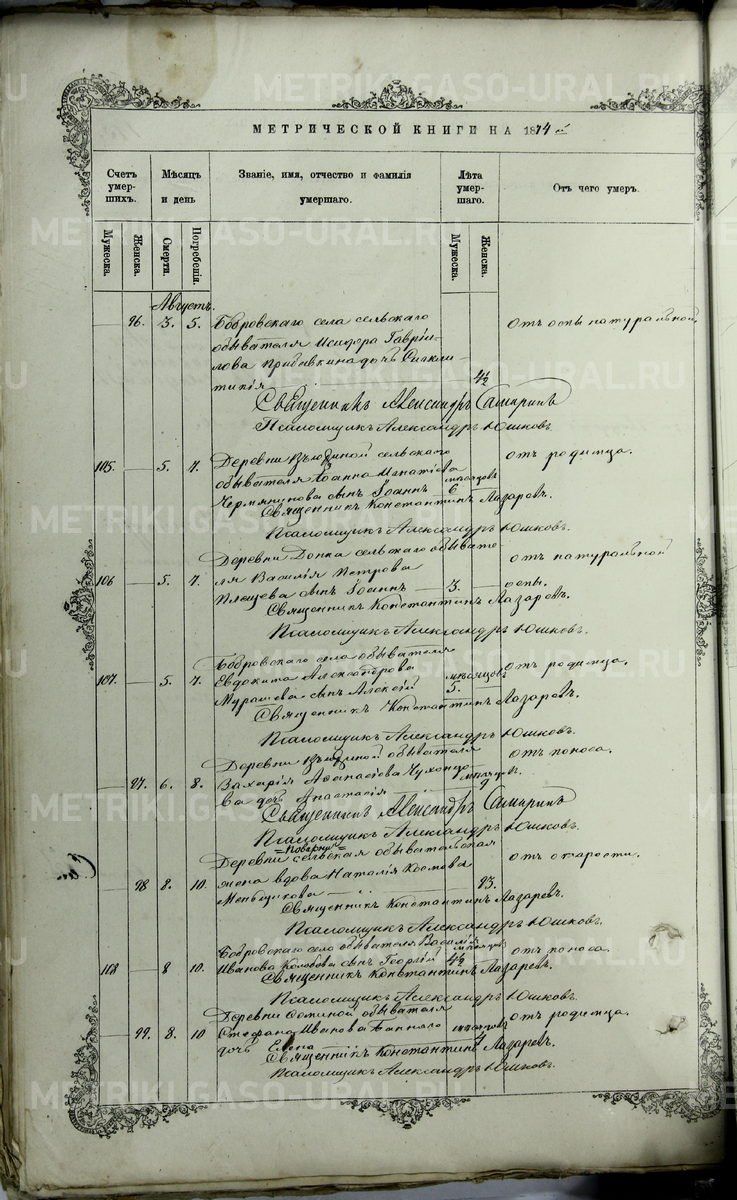 МЕТРИЧЕСКОЙ КНИГИ НА 1874 г.
Счетъ умершихъ.
Мѣсяцъ и день
Званіе, имя, отчество и фамилія умершаго.
Лѣта умершаго.
Отъ чего умеръ.
Мужеска.
Женска.
Смерти.
Погребенія.
Мужеска.
Женска.
Августъ.
96. 3. 5. Бобровскаго села сельскаго отъ оспы натуральной
обывателя Исидора Гаврiи-
лова дочь Сиккли-
тикія 4½
Священникъ Александръ Самаринъ
Псаломщикъ Александръ Юшковъ.
105. 5. 7. Деревни сельскаго отъ родимца.
обывателя Іоанна Игнатіева мѣсяцовъ
сынъ Іоаннъ 6
Священникъ Константинъ Лазаревъ.
Псаломщикъ Александръ Юшковъ.
Деревни сельскаго обывате- отъ натуральной
106 5. 7. ля Василія Петрова
Плещева сынъ Іоаннъ 3. оспы.
Священникъ Константинъ Лазаревъ.
Псаломщикъ Александръ Юшковъ.
Бобровскаго села обывателя
107. 5. 7. Евдокима Александрова мѣсяцовъ отъ родимца.
Мурашева сынъ Алексій 5.
Священникъ Константинъ Лазаревъ.
Псаломщикъ Александръ Юшковъ.
Деревни обывателя отъ поноса.
97. 6. 8. Захарія Аѳанасіева мѣсяцы.
ва дочь Анастасія
Священникъ Александръ Самаринъ
Псаломщикъ Александръ Юшковъ.
Деревни сельская обывательская отъ старости.
98 8. 10. жена вдова Наталія Космова
Меньщикова 93.
Священникъ Константинъ Лазаревъ.
Псаломщикъ Александръ Юшковъ.
Бобровскаго села обывателя Василія отъ поноса.
108 8 10. Иванова Колобова сынъ Георгій 4½
Священникъ Константинъ Лазаревъ.
Псаломщикъ Александръ Юшковъ.
Деревни обывателя отъ родимца.
99. 8. 10 Стефана Иванова
дочь Елена
Священникъ Константинъ Лазаревъ.
Псаломщикъ Александръ Юшковъ.
METRIKI.GASO-URAL.RU